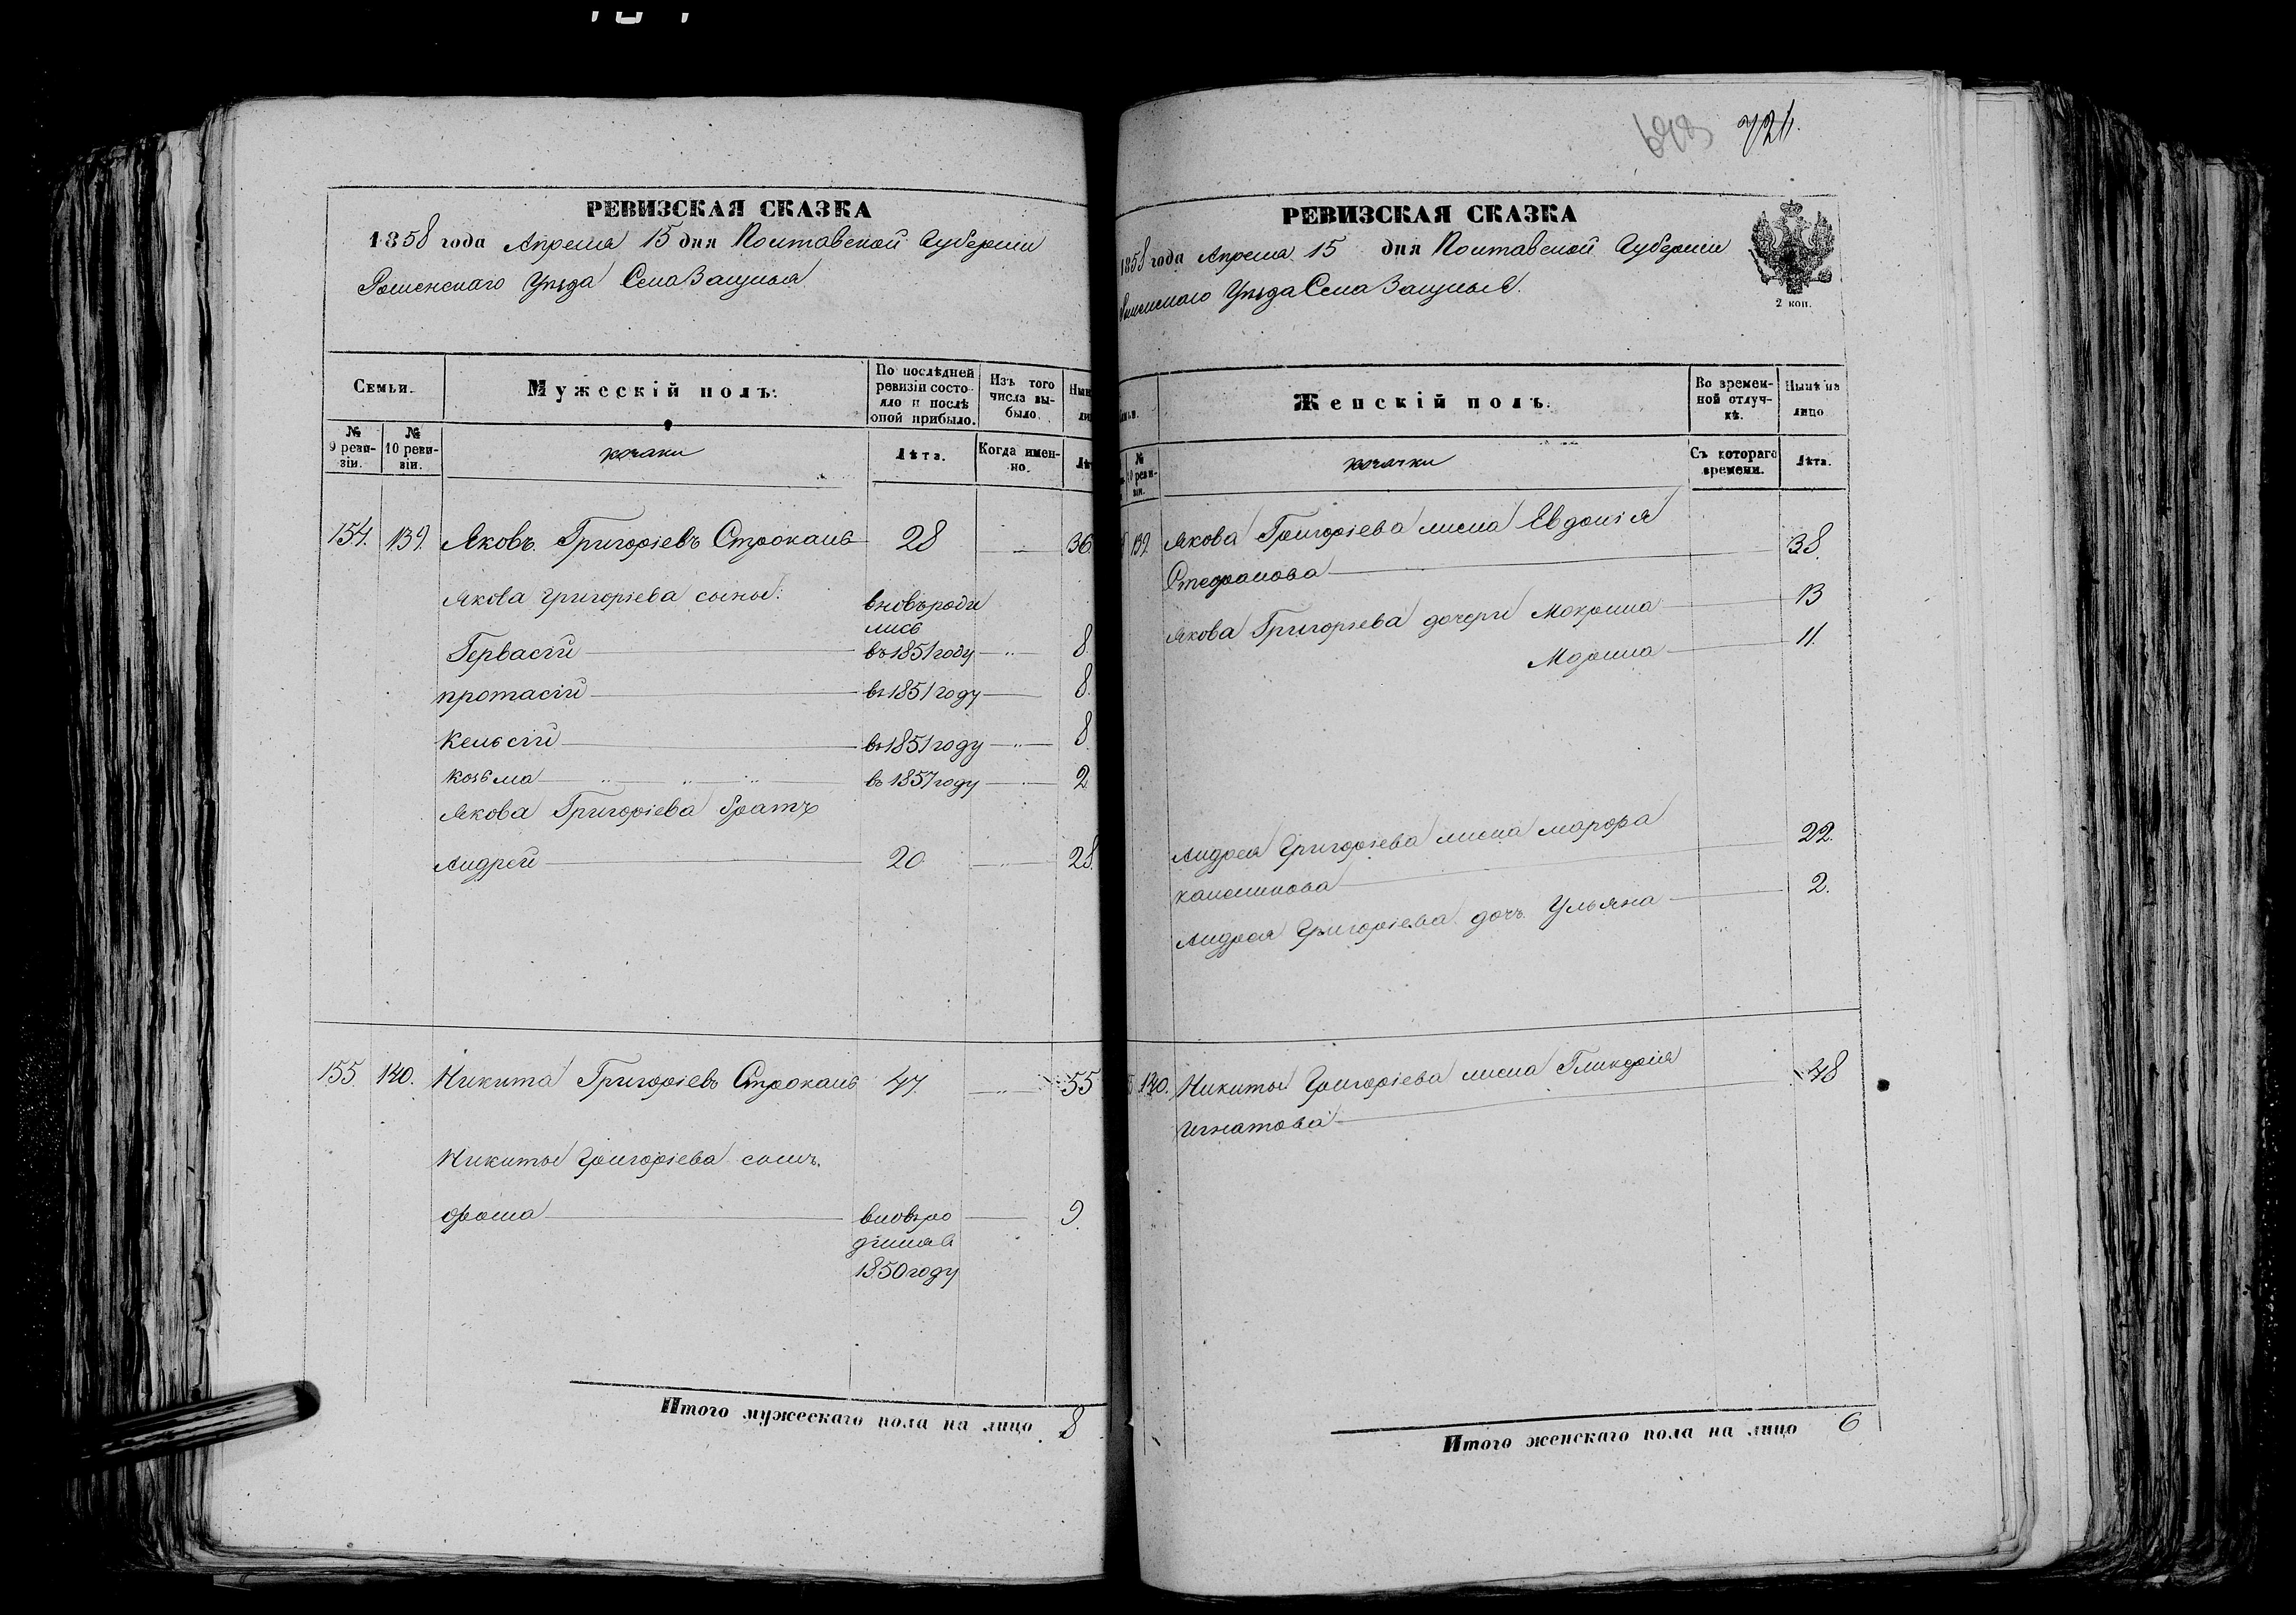 РЕВИЗСКАЯ СКАЗКА
1858 года Апреля 15 дня Полтавской Губернiи
Роменскаго Уѣзда Села
Семьи.
Мужескiй полъ.
По послѣдней ревизiи состояло и послѣ оной прибыло.
Изъ того числа выбыло.
№ 9 ревизiи.
№ 10 ревизiи.
козаки
Лѣта.
Когда именно.
154. 139. Яковъ Григорiевъ Строкань 28 36.
Якова Григорiева сыны:
вновь роди
лись
Гервасiй въ 1851 году 8.
протасiй въ 1851 году 8.
Кельсiй въ 1851 году 8
козьма въ 1857 году 2
Якова Григорiева братъ
Андрей 20 28.
155. 140. Никита Григорiевъ Строкань 47. 55
Никиты Григорiева сынъ.
фома вновь ро 9.
дился
1850 году
Итого мужескаго пола на лицо 8
721.
РЕВИЗСКАЯ СКАЗКА
1858 года Апреля 15 дня Полтавской Губернiи
Уѣзда Села
2 коп.
Женскiй полъ.
Во временной отлучкѣ.
Нынѣ на лицо
козачки
Съ котораго времени.
Лѣта.
139. Якова Григорiева жена Евдокiя
Стефанова 38.
Якова Григорiева дочери Мокрина 13
Марина 11.
Андрея Григорiева жена марфа
22.
Андрея Григорiева дочь Ульяна 2.
140. Никиты Григорiева жена Гликерiя 48
Игнатова
Итого женскаго пола на лицо 6